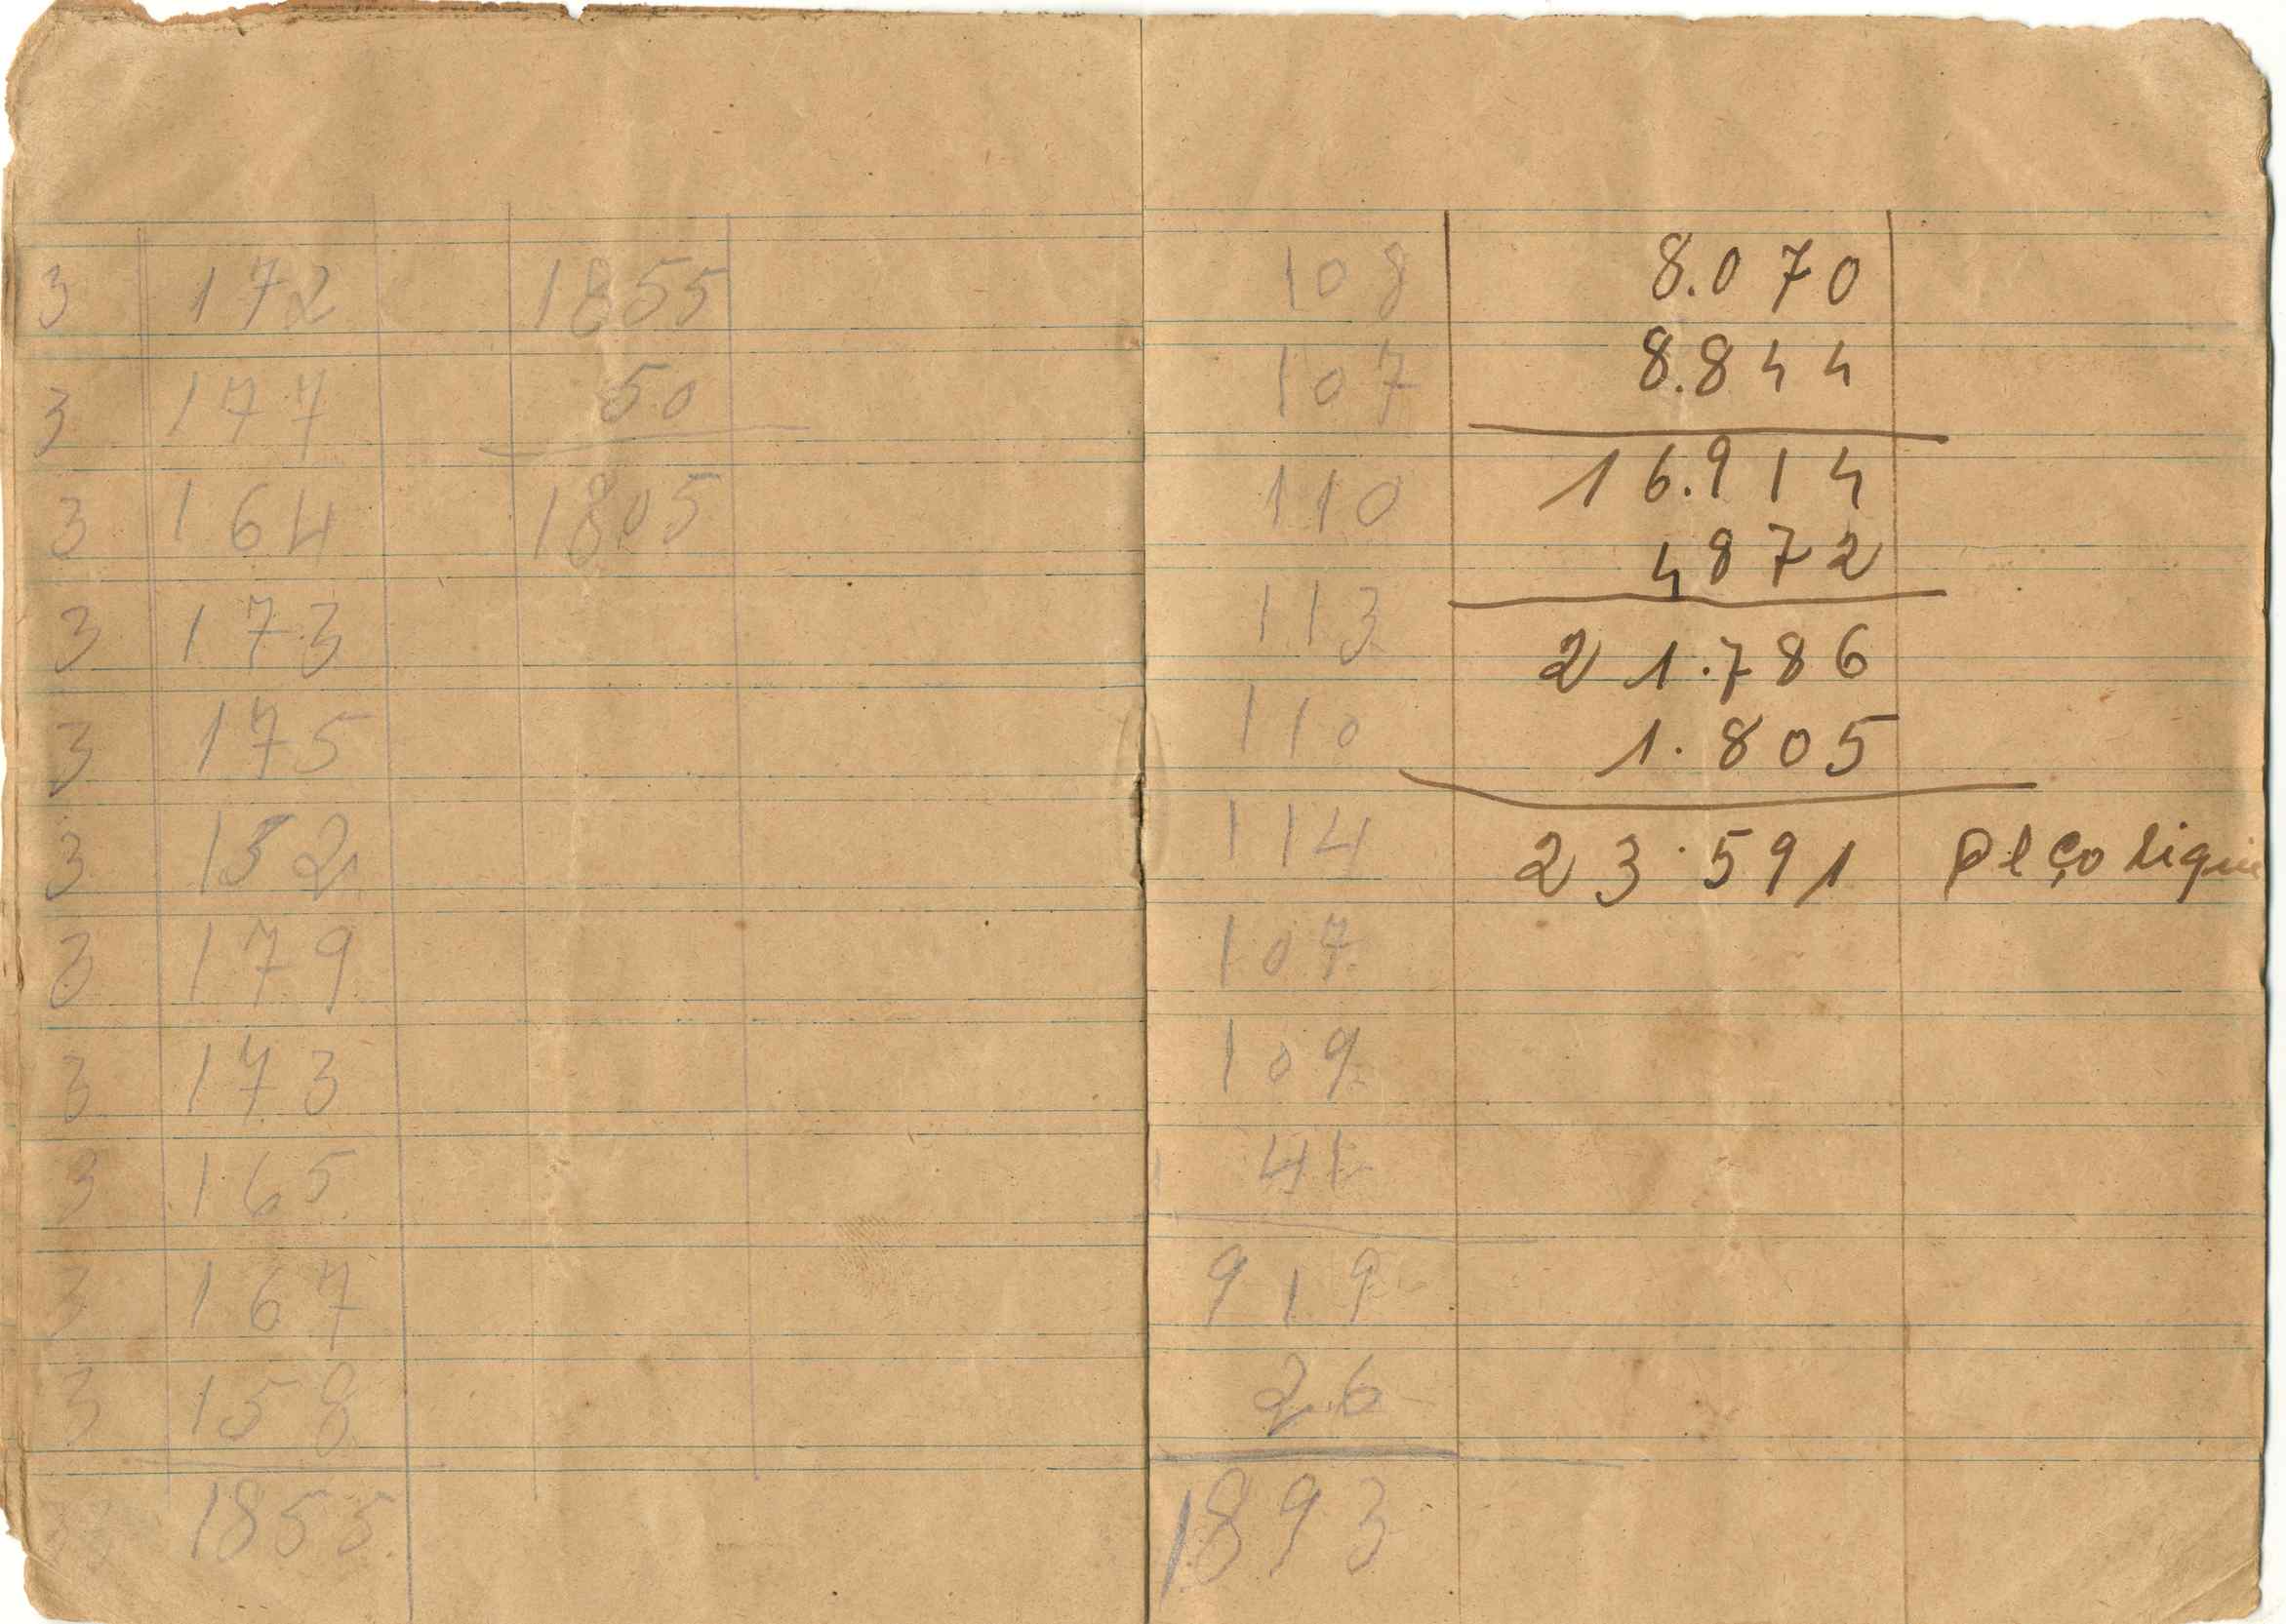 3 172 1855
3 177 50
3 164 1805
3 173
3 175
3 152
3 179
3 173
3 165
3 167
3 158
33 1855
108
107
110
113
110
114
107
109
41
919
26
1893
8.070
8.844
16.914
4872
21.786
1.805
23.591 peço liqui